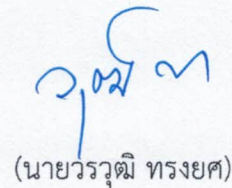 (นายวรวุฒิ ทรงยศ)